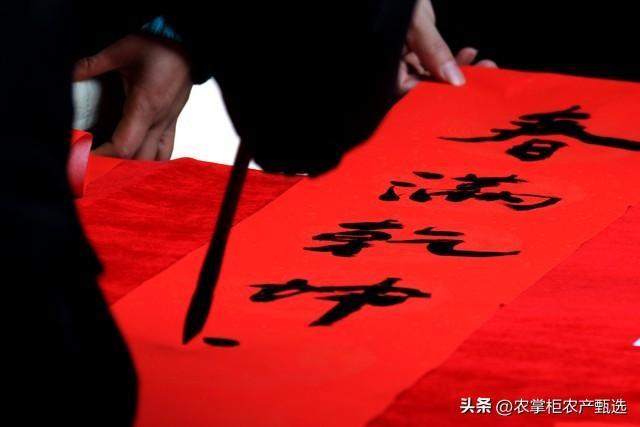 春满乾坤
头条 @农掌柜农产甄选